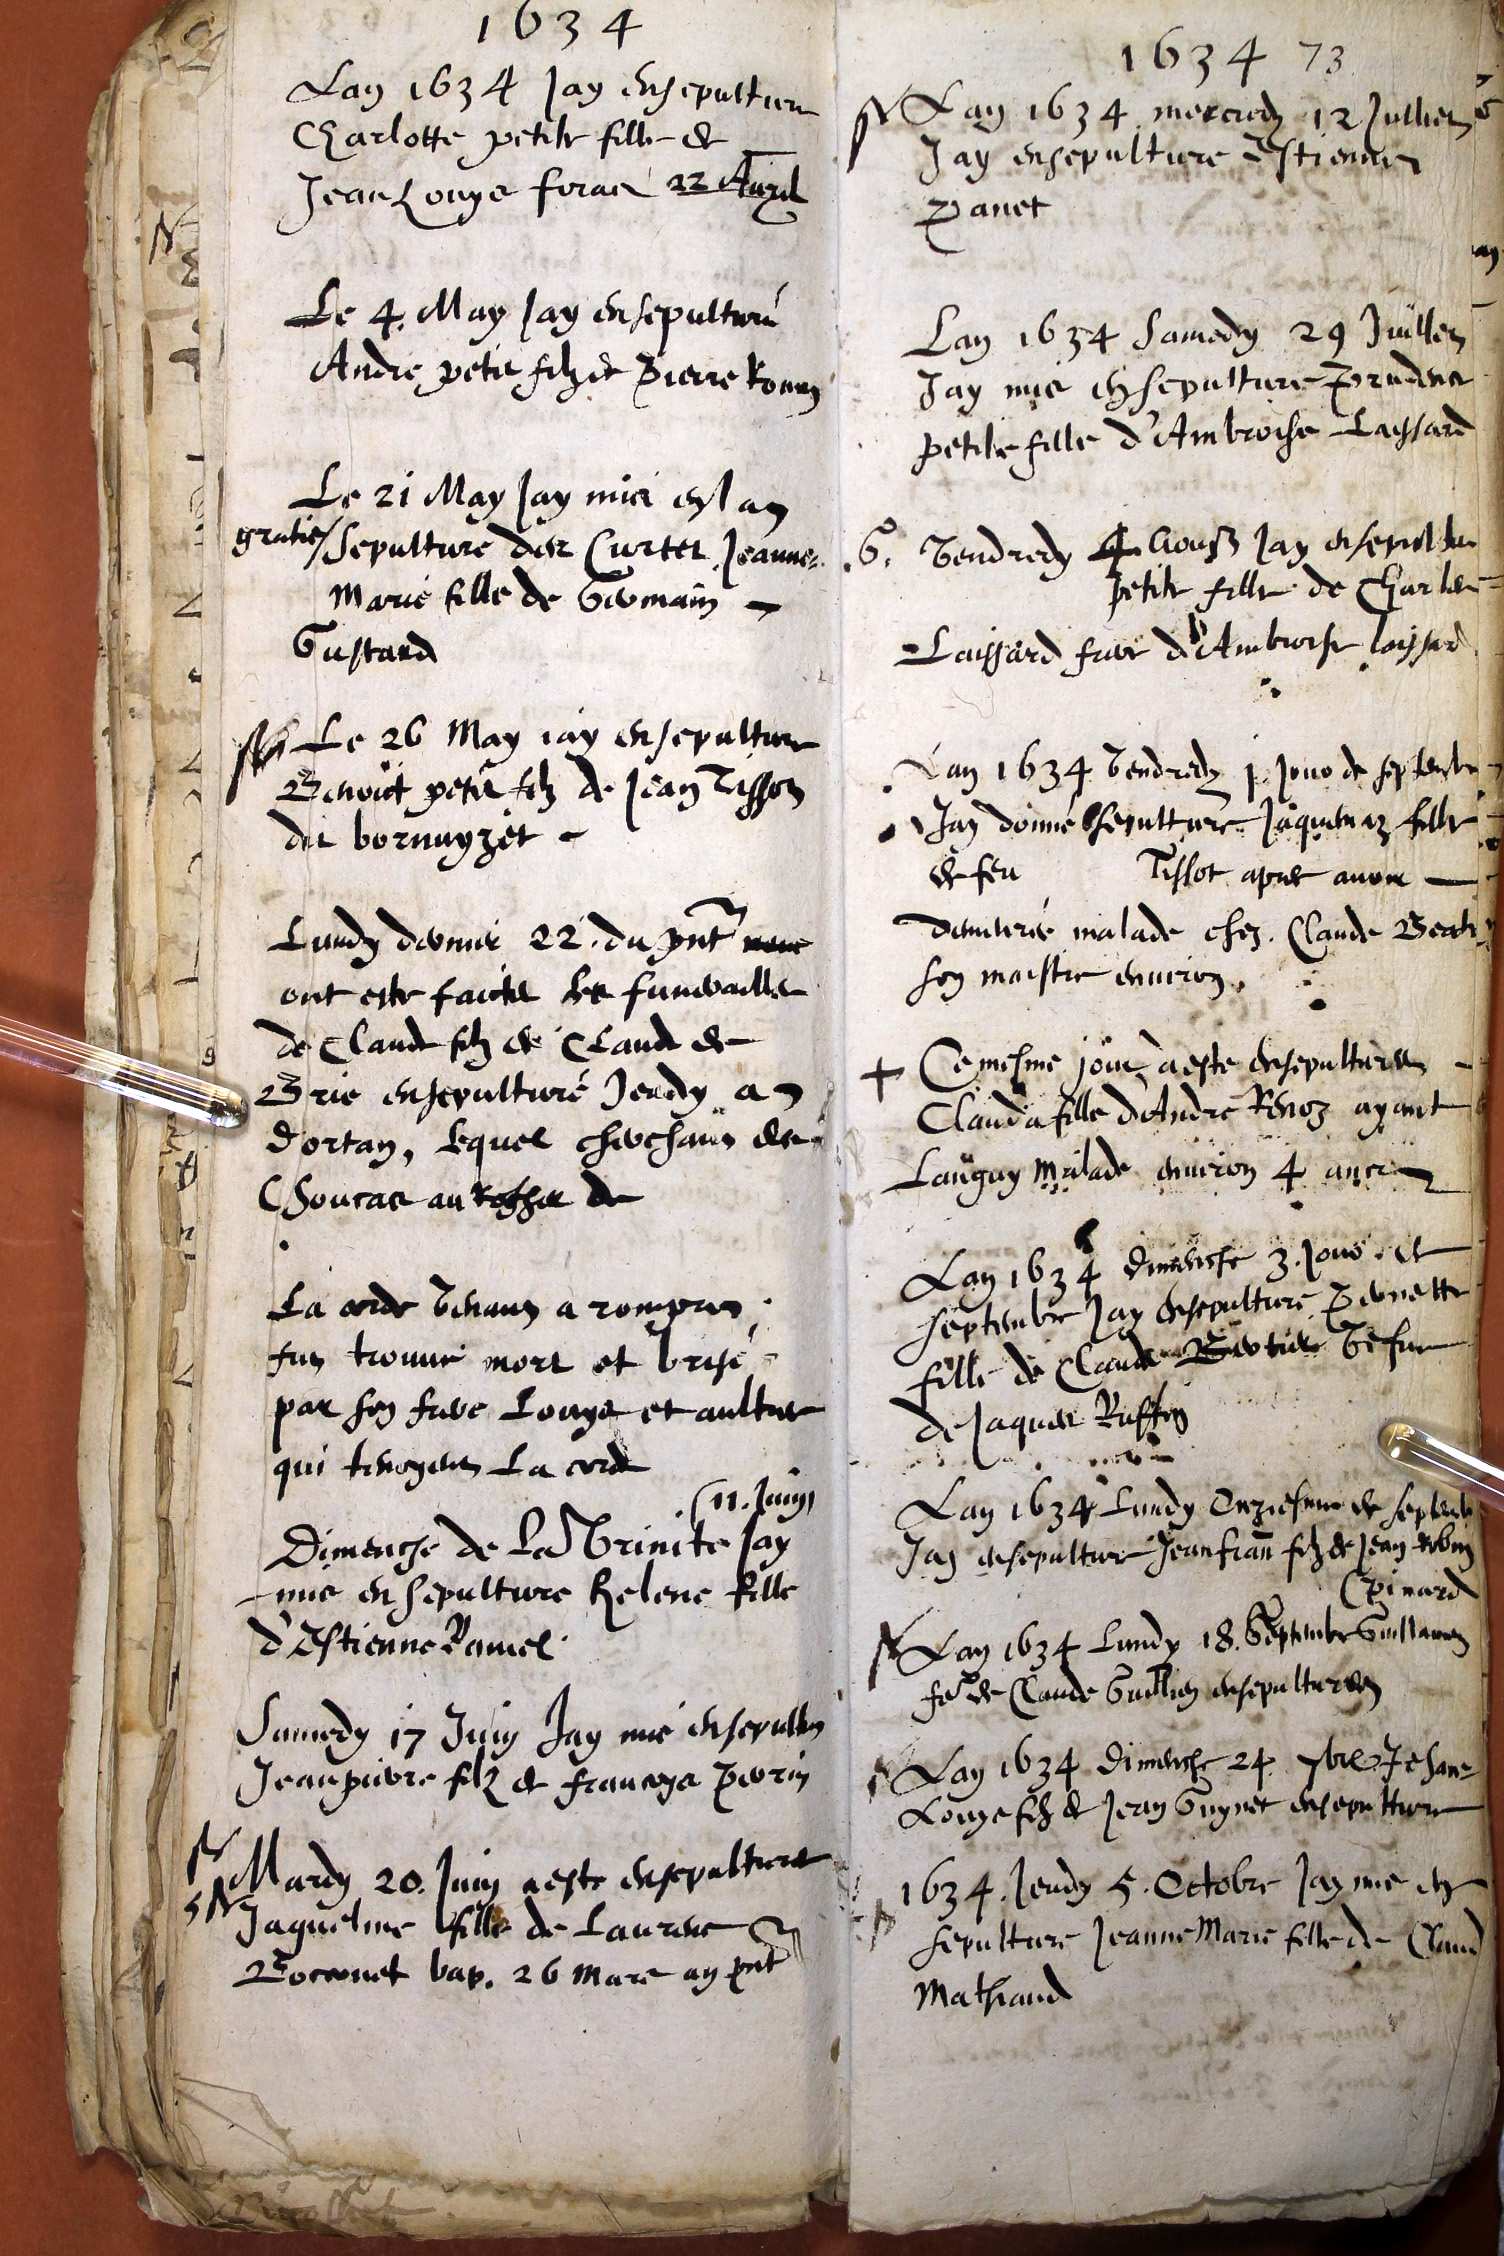 1634
Lan 1634 Jay ensepulturé
Charlotte petite fille de
Jean Louys 22 Avril
Le 4. May Jay ensepulturé
André petit filz de Pierre
Le 21 May Jay mis en
gratis / Sepulture des Curtet Jeanne=
Marie fille de Germain
Gustand
Le 26 May iay ensepulturé
Benoict petit filz de Jean Tissot
dit bornuyzet
Lundy dernier 22. du pnt
ont esté faictes les funerailles
de Claude filz de Claude de
Brie ensepulturé Jeudy a
Dortan, lequel cherchant des
Choucas au de
La corde venant a rompre,
fut trouué mort et brisé
par son frere Louys et aultres
qui tenoyent La corde
(11. Juin)
Dimenche de La Trinite Jay
mis en sepulture helene fille
d'Estienne Ramel.
Samedy 17 Juin Jay mis ensepulture
Jean pierre filz de françoys Perrin
Mardy 20. Juin a esté ensepulturée
Jaquelme fille de Laurent
bap. 26 Mars an pnt
1634 73
Lan 1634 mercredy 12 Jullien
Jay ensepulturé Estienne
Panet
Lan 1634 Samedy 29 Juillen
Jay mis en sepulture Prudence
petite fille d'Ambroise Laissard
G. Vendredy 4 Aoust Jay ensepulturé
petite fille de Charles
Laissard frere d'Ambroise laissard
Lan 1634 Vendredy 1. Jour de septembre
Jay donné sepulture Jaquemaz fille
de feu Tissot apres auoir
demeuré malade chez Claude
son maistre enuiron
+ Ce mesme jour a esté ensepulturée
Clauda fille d'André Renoz ayant
Languy malade enuiron 4 ans
Lan 1634 dimenche 3. Jour de
septembre Jay ensepulturé Pernette
fille de Claude Vefue
de Jaques Ruffin
Lan 1634 Lundy Onziesme de septembre
Jay ensepulturé Jean fran filz de Jean
Pinard
Lan 1634 Lundy 18. Septembre Guillaume
fe de Claude Guillien ensepulturée
Lan 1634 Dimenche 24. 7bre Jehan=
Louys filz de Jean Guynet ensepulturé
1634. Jeudy 5. Octobre Jay mis en
sepulture Jeanne Marie fille de Claud
Mathaud